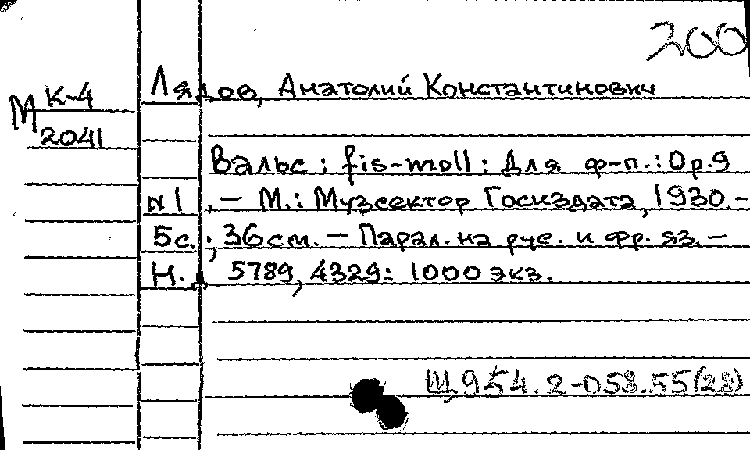 200
Лядов, Анатолий Константинович
М К-4
2041
Вальс : fis-moll : Для ф-п. : Op.9
N1. – М. : Музсектор Госиздата, 1930. –
5с. ; 36см. – Парал. на рус. и фр. яз. –
Н. д. 5789, 4329 : 1000 экз.
Щ954.2-058.55(28)